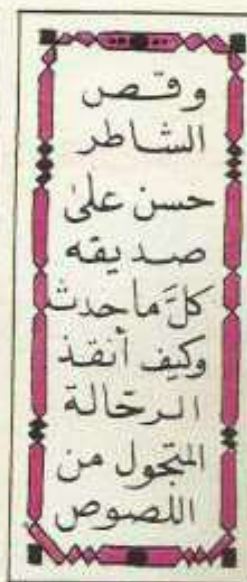 وقص
الشاطر
حسن على
صديقه
كلَّ ماحدث
وكيف أنقذ
الرحّالة
المتجول من
اللصوص